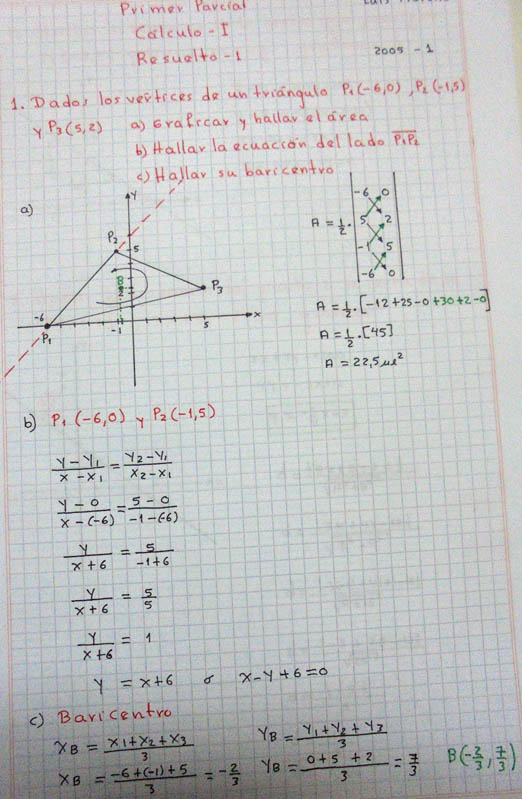 Primer Parcial
Cálculo - I
Resuelto - 1
2005 - 1
1. Dados los vértices de un triángulo P₁(-6,0), P₂(-1,5)
y P₃(5,2) a) Graficar y hallar el área
b) Hallar la ecuación del lado P₁P₂
c) Hallar su baricentro
a)
Y
P₂
5
B
2
P₃
-6
-1
5
X
P₁
A = 1/2 ·
-6 0
5 2
-1 5
-6 0
A = 1/2 · [-12+25-0+30+2-0]
A = 1/2 · [45]
A = 22,5 ul²
b) P₁ (-6,0) y P₂ (-1,5)
(Y - Y₁)/(X - X₁) = (Y₂ - Y₁)/(X₂ - X₁)
(Y - 0)/(X - (-6)) = (5 - 0)/(-1 - (-6))
Y/(X + 6) = 5/(-1+6)
Y/(X + 6) = 5/5
Y/(X + 6) = 1
Y = X+6 ó X-Y+6=0
c) Baricentro
X_B = (X₁+X₂+X₃)/3 Y_B = (Y₁+Y₂+Y₃)/3
X_B = (-6+(-1)+5)/3 = -2/3 Y_B = (0+5+2)/3 = 7/3 B(-2/3, 7/3)